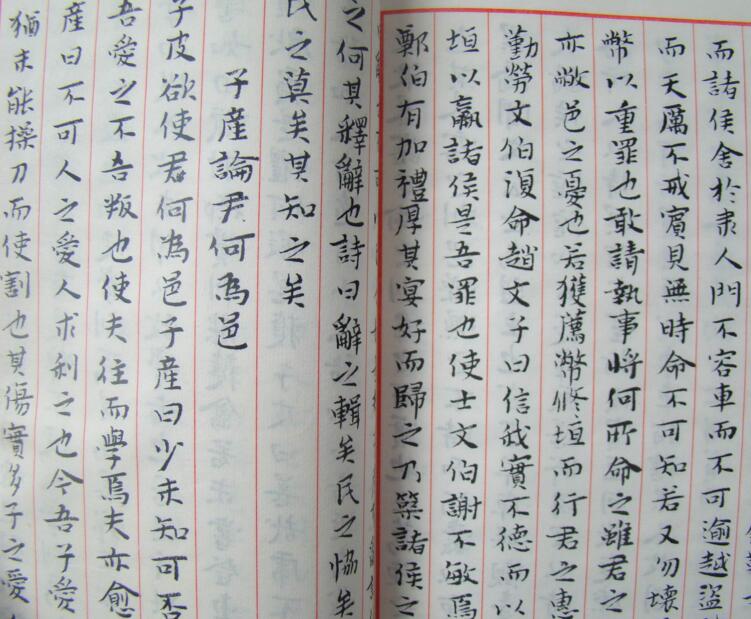 而諸侯舍於隶人門不容車而不可逾越盜
而天厲不戒賓見無時命不可知若又勿壞
幣以重罪也敢請執事將何所命之雖君之
亦敝邑之憂也若獲薦幣修垣而行君之惠
勤勞文伯復命趙文子曰信我實不德而以
垣以贏諸侯是吾罪也使士文伯謝不敏焉
鄭伯有加禮厚其宴好而歸之乃築諸侯之
之何其釋辭也詩曰辭之輯矣民之恊矣
民之莫矣其知之矣
子產論尹何為邑
子皮欲使尹何為邑子產曰少未知可否
吾愛之不吾叛也使夫往而學焉夫亦愈
產曰不可人之愛人求利之也今吾子愛
猶未能操刀而使割也其傷實多子之愛